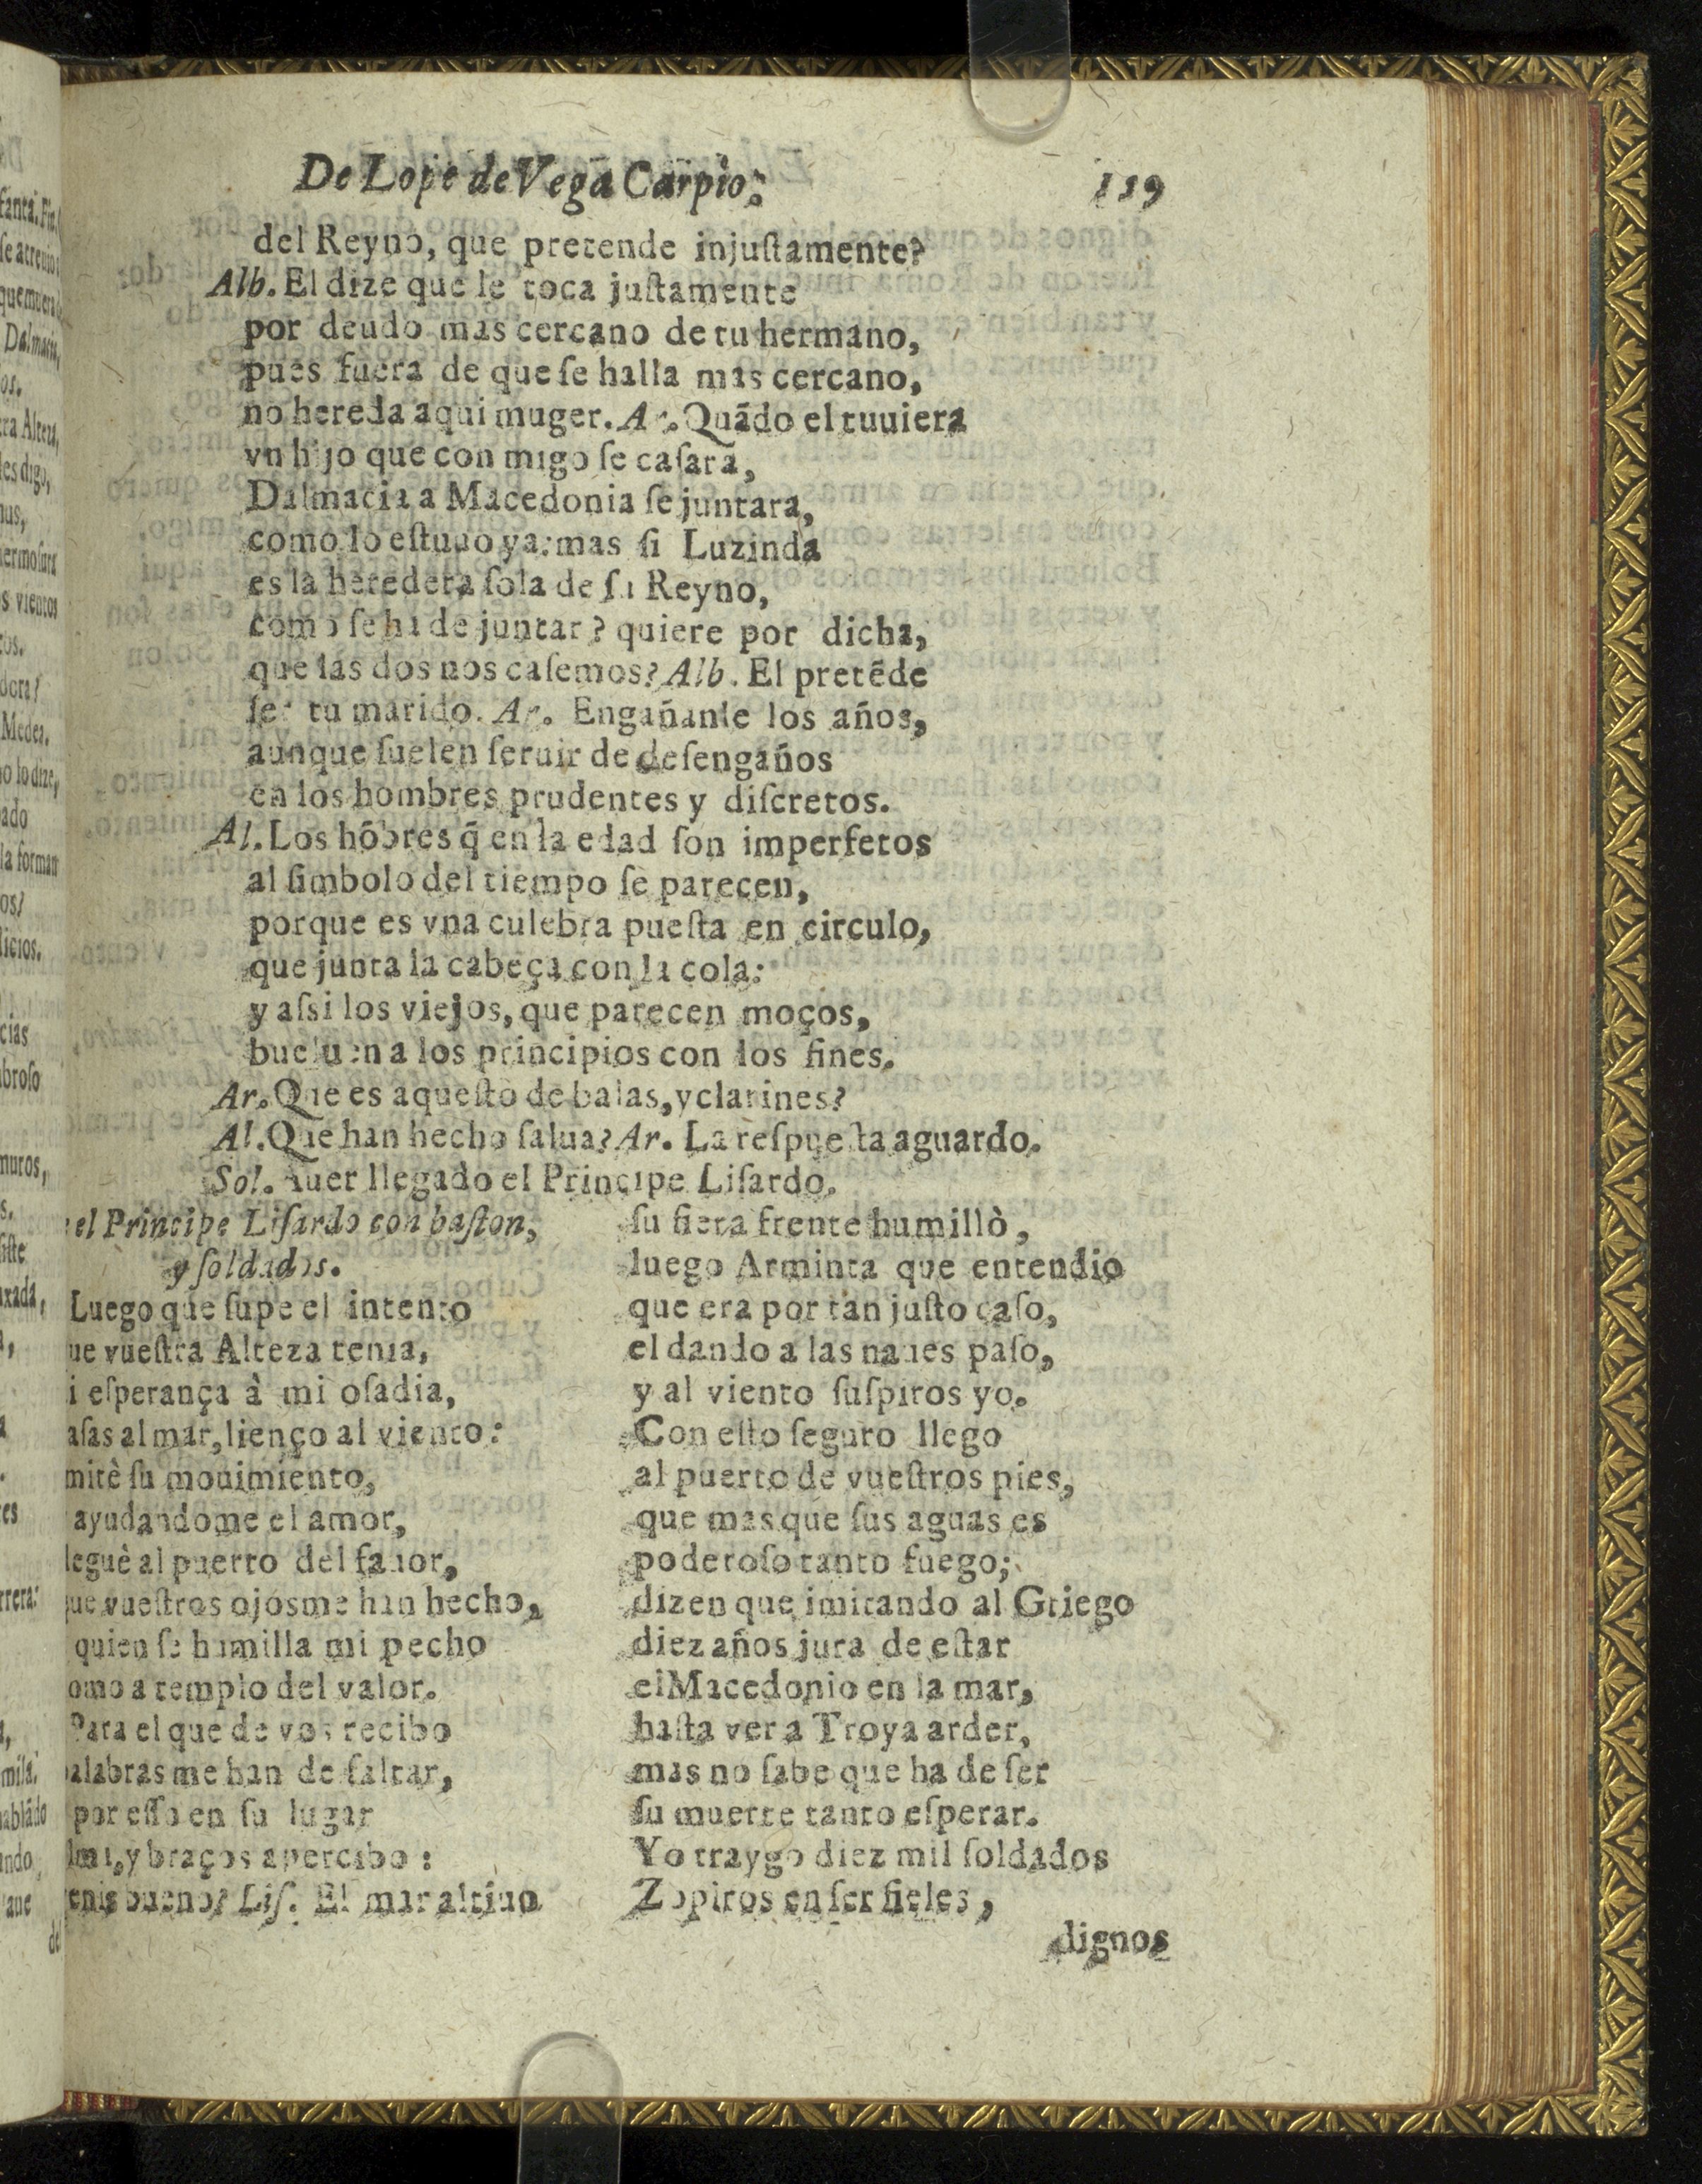 De Lope de Vega Carpio:
119
del Reyno, que pretende injuſtamente?
Alb. El dize que le toca juſtamente
por deudo mas cercano de tu hermano,
pues fuera de que ſe halla mas cercano,
no hereda aqui muger. Ar. Quãdo el tuuiera
vn hijo que con migo ſe caſara,
Dalmacia a Macedonia ſe juntara,
como lo eſtuuo ya: mas ſi Luzinda
es la heredera ſola de ſu Reyno,
como ſe ha de juntar? quiere por dicha,
que las dos nos caſemos? Alb. El pretẽde
ſer tu marido. Ar. Engañanle los años,
aunque ſuelen ſeruir de deſengaños
en los hombres prudentes y diſcretos.
Al. Los hõbres q̃ en la edad ſon imperfetos
al ſimbolo del tiempo ſe parecen,
porque es vna culebra pueſta en circulo,
que junta la cabeça con la cola:
y aſsi los viejos, que parecen moços,
bueluen a los principios con los fines.
Ar. Que es aqueſto de balas, y clarines?
Al. Que han hecho ſalua? Ar. La reſpueſta aguardo.
Sol. Auer llegado el Principe Liſardo.
el Principe Liſardo con baſton,
y ſoldados.
Luego que ſupe el intento
ue vueſtra Alteza tenia,
i eſperança à mi oſadia,
aſas al mar, lienço al viento:
mitè ſu mouimiento,
ayudandome el amor,
leguè al puerto del fauor,
que vueſtros ojos me han hecho,
quien ſe humilla mi pecho
omo a templo del valor.
Para el que de vos recibo
palabras me han de faltar,
por eſſo en ſu lugar
lma, y braços apercibo:
enis bueno? Liſ. El mar altiuo
ſu fiera frente humillò,
luego Arminta que entendio
que era por tan juſto caſo,
el dando a las naues paſo,
y al viento ſuſpiros yo.
Con eſto ſeguro llego
al puerto de vueſtros pies,
que mas que ſus aguas es
poderoſo tanto fuego;
dizen que imitando al Griego
diez años jura de eſtar
el Macedonio en la mar,
haſta ver a Troya arder,
mas no ſabe que ha de ſer
ſu muerte tanto eſperar.
Yo traygo diez mil ſoldados
Zopiros en ſer fieles,
dignos